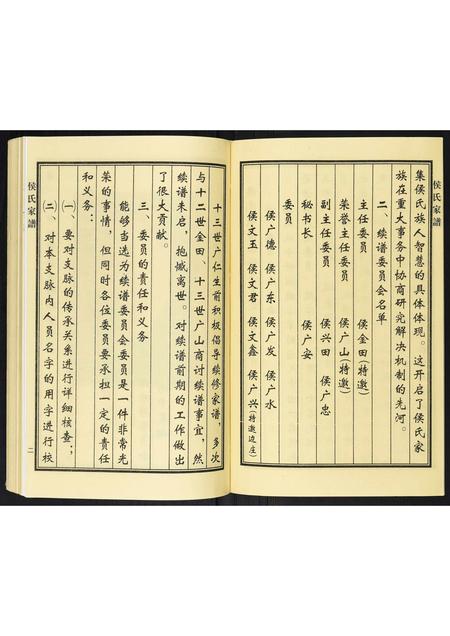 侯氏家譜
集侯氏族人智慧的具体体现。这开启了侯氏家
族在重大事务中协商研究解决机制的先河。
二、续谱委员会名单
主任委员 侯金田(特邀)
荣誉主任委员 侯广山(特邀)
副主任委员 侯兴田 侯广忠
秘书长 侯广安
委员
侯广德 侯广东 侯广发 侯广水
侯文玉 侯文君 侯文鑫 侯广兴(特邀边庄)
十三世广仁生前积极倡导续修家谱,多次
与十二世金田、十三世广山商讨续谱事宜,然
续谱未启,抱憾离世。对续谱前期的工作做出
了很大贡献。
三、委员的责任和义务
能够当选为续谱委员会委员是一件非常光
荣的事情,但同时各位委员要承担一定的责任
和义务:
㈠、要对支脉的传承关系进行详细核查;
㈡、对本支脉内人员名字的用字进行校
侯氏家譜
二